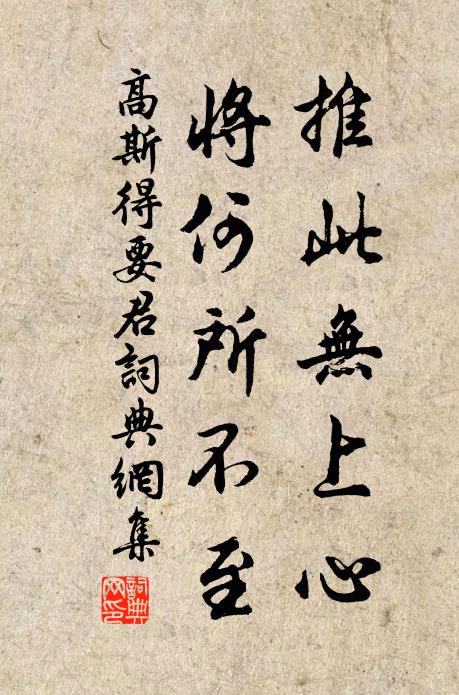 推此無上心
將何所不至
高斯得要君詞典網集
詞典
网印